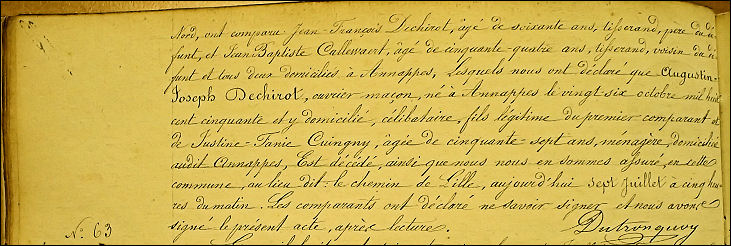 Nord, ont comparu Jean-François Dechirot, âgé de soixante ans, tisserand, père du dé
funt, et Jean Baptiste Callewaert, âgé de cinquante quatre ans, tisserand, voisin du dé
funt et tous deux domiciliés à Annappes, lesquels nous ont déclaré que Augustin-
Joseph Dechirot, ouvrier maçon, né à Annappes le vingt six octobre mil huit
cent cinquante et y domicilié, célibataire, fils légitime du premier comparant et
de Justine-Fanie Cuingny, âgée de cinquante-sept ans, ménagère, domiciliée
audit Annappes, Est décédé, ainsi que nous nous en sommes assuré, en cette
commune, au lieu dit: le chemin de Lille, aujourd'hui sept Juillet à cinq heu
res du matin. Les comparants ont déclaré ne savoir signer et nous avons
signé le présent acte, après lecture.
Dutronquoy
N: 63